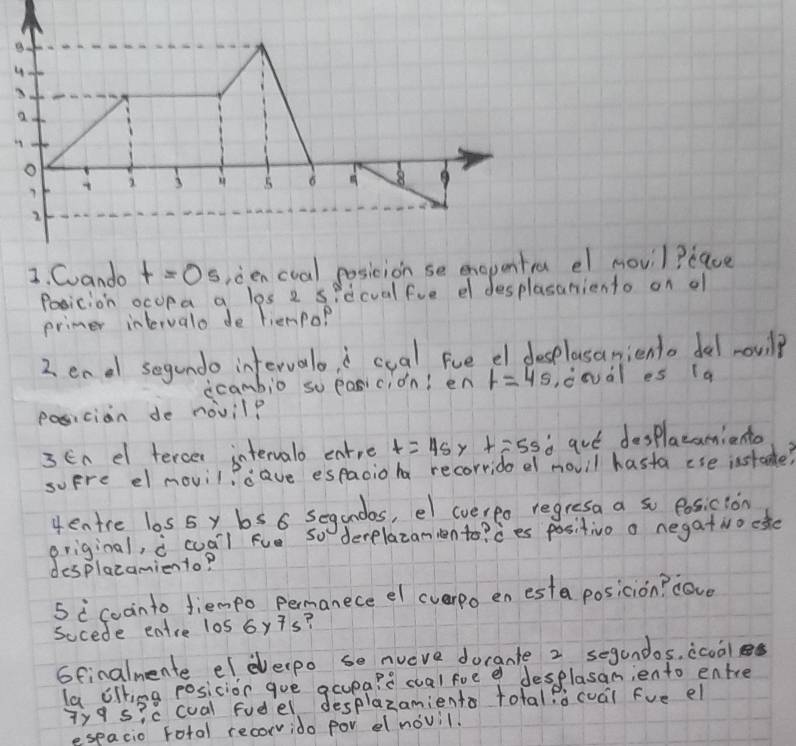 5
4
3
2
1
0
1 2 3 4 5 6 7 8 9
1
2
1. Cuando t = 0s, ¿en cual posición se encuentra el movil? ¿que
Posición ocupa a los 2 s? ¿cual fue el desplasamiento en el
primer intervalo de tiempo?
2. en el segundo intervalo, ¿ cual fue el desplasamiento del movil?
¿cambio su posicion? en t = 4s, ¿cuál es la
posición de móvil?
3 En el tercer intervalo entre t = 4s y t = 5s ¿ qué desplazamiento
sufre el movil? ¿Que espacio ha recorrido el movil hasta ese instante?
4 entre los 5 y los 6 segundos, el cuerpo regresa a su Posición
original, ¿ cuál fue su desplazamiento? ¿ es positivo o negativo este
desplazamiento?
5 ¿ cuánto tiempo permanece el cuerpo en esta posición? ¿Que
sucede entre los 6 y 7s?
6 finalmente el cuerpo se mueve durante 2 segundos. ¿cuál es
la última posición que ocupa? ¿ cual fue el desplasamiento entre
7 y 9 s? ¿ cual fue el desplazamiento total? ¿ cuál fue el
espacio total recorrido por el móvil.